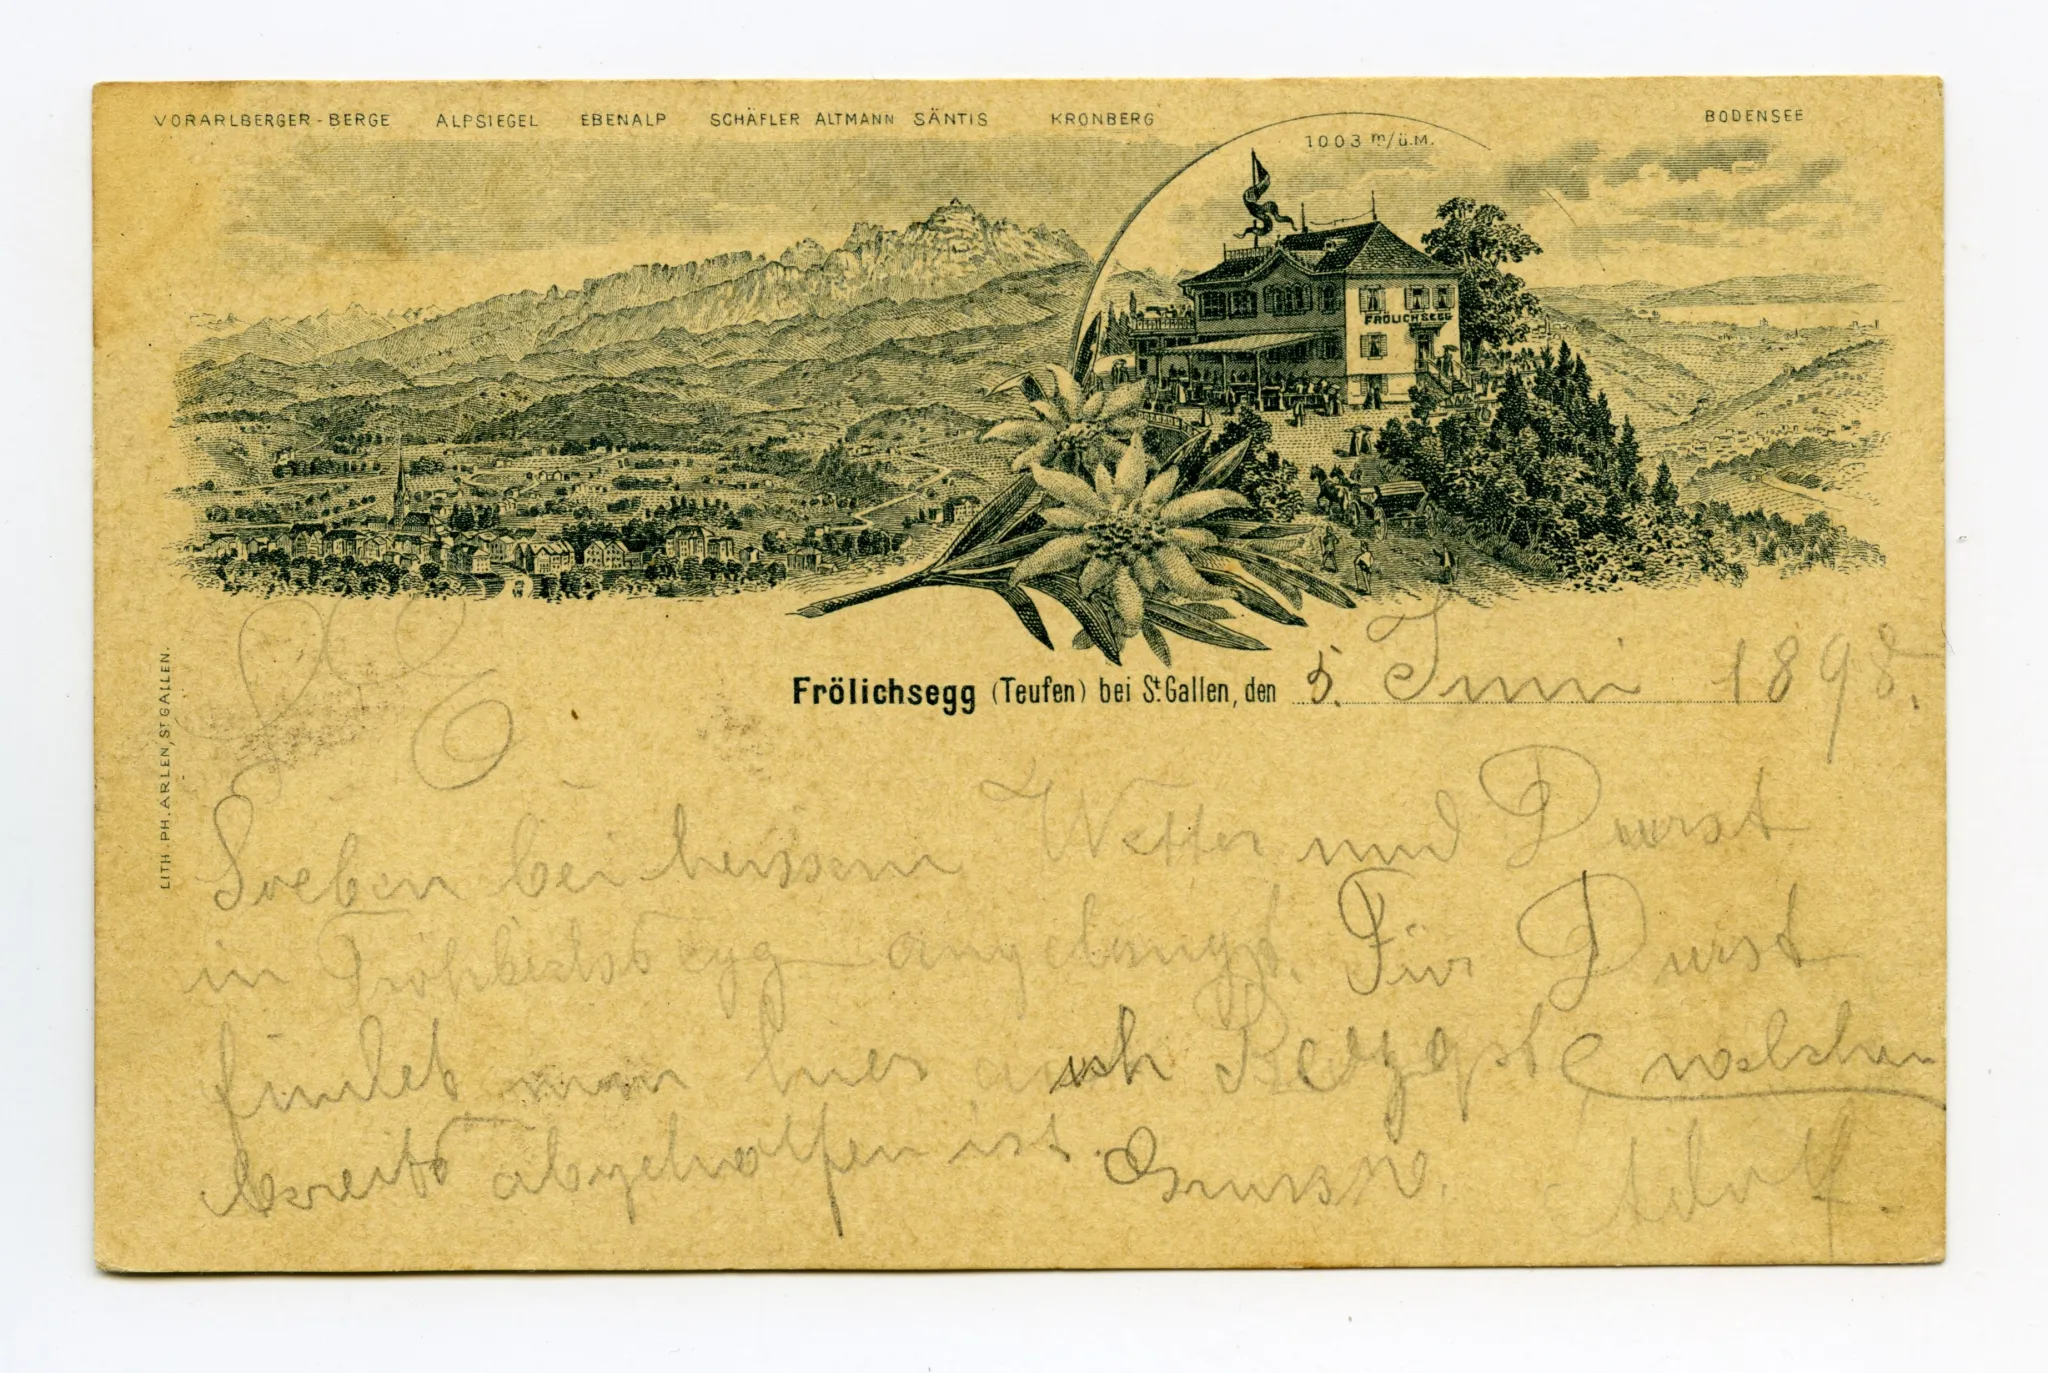 VORARLBERGER-BERGE ALPSIEGEL EBENALP SCHÄFLER ALTMANN SÄNTIS KRONBERG BODENSEE
1003 m/ü.M.
FRÖLICHSEGG
LITH. PH. ARLEN, ST GALLEN.
Frölichsegg (Teufen) bei St. Gallen, den 5. Juni 1898.
Soeben bei heissem Wetter und Durst
in angelangt. Für Durst
findet man hier auch Rezepte welchen
bereits abgeholfen ist. Grüsse. Adolf.